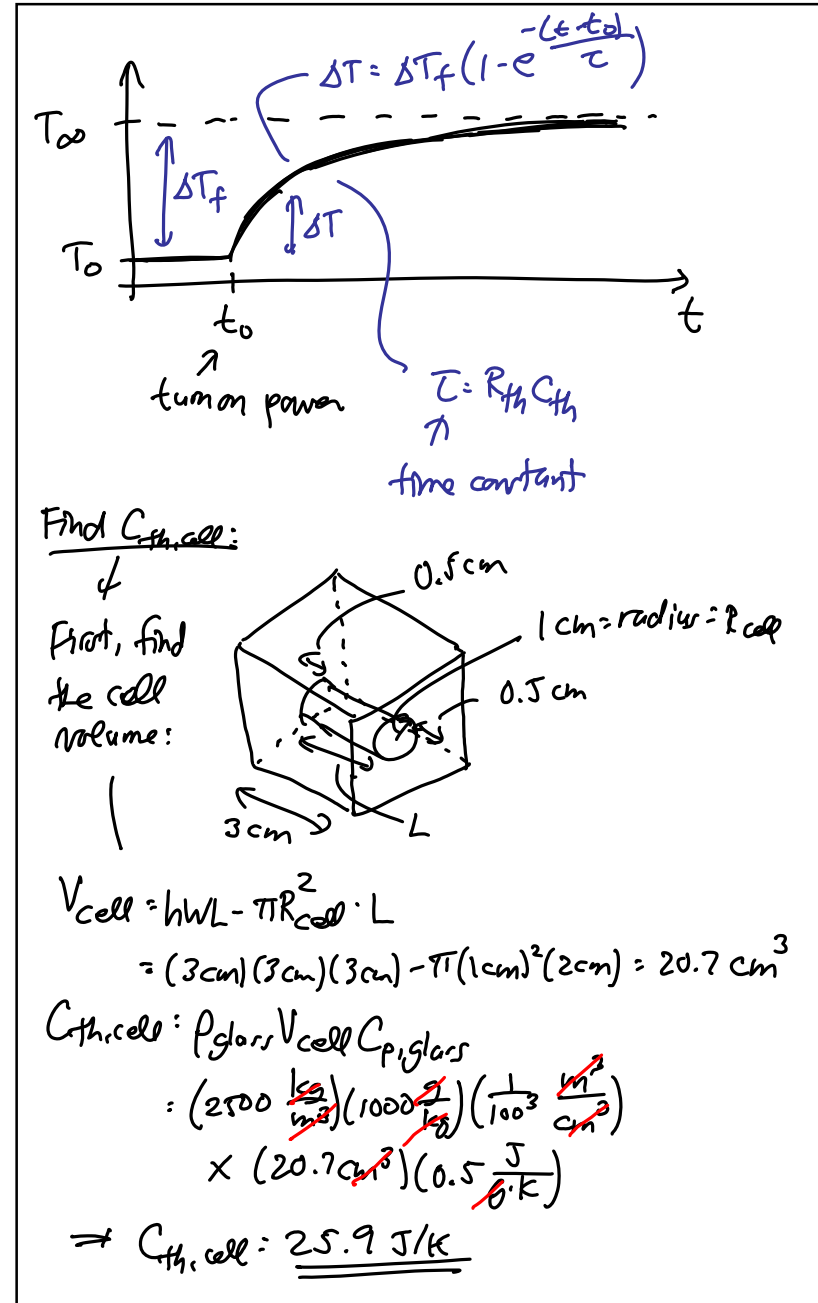 ΔT = ΔT_f (1 - e^{-(t-t_0)/τ})
T_∞
ΔT_f
ΔT
T_0
t_0
t
turn on power
τ = R_th C_th
time constant
Find C_th,cell:
0.5 cm
1 cm = radius = R_cell
First, find
the cell
volume:
0.5 cm
3 cm
L
V_cell = hWL - πR_cell^2 · L
= (3cm)(3cm)(3cm) - π(1cm)^2(2cm) = 20.7 cm^3
C_th,cell = ρ_glass V_cell C_p,glass
= (2500 kg/m^3)(1000 g/kg)(1/100^3 m^3/cm^3)
× (20.7cm^3)(0.5 J/g·K)
⇒ C_th,cell = 25.9 J/K